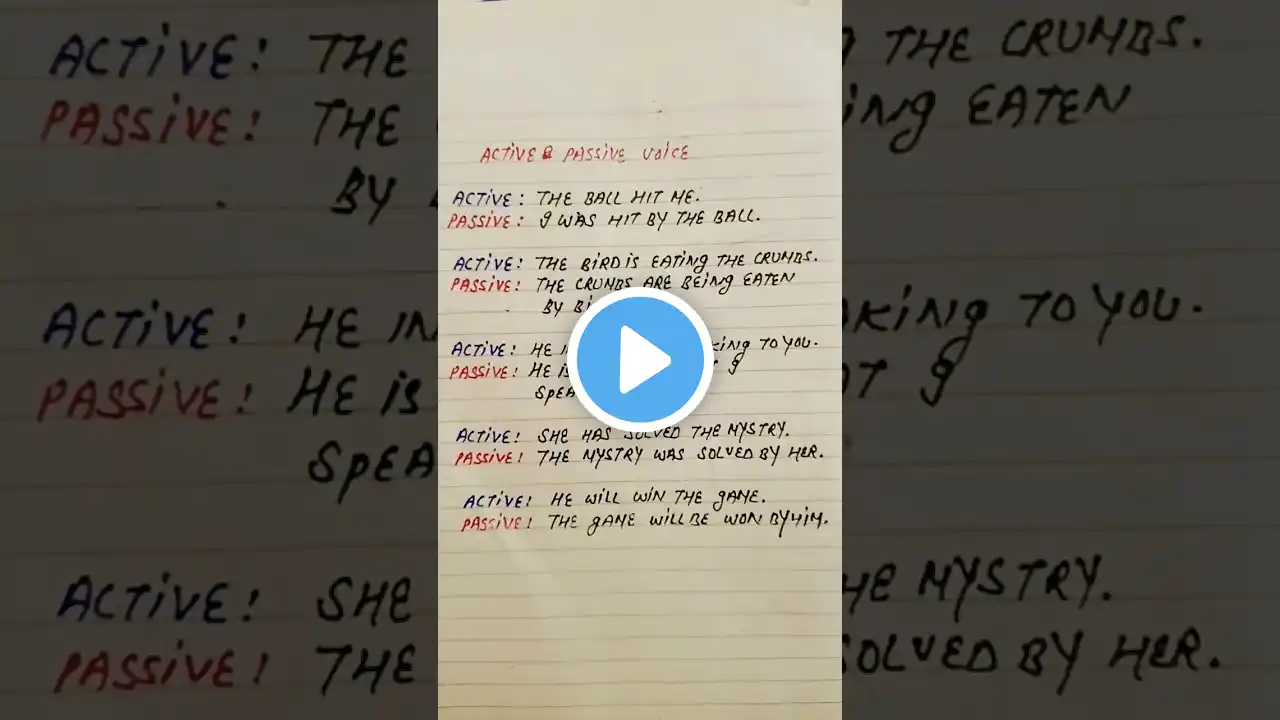 ACTIVE & PASSIVE VOICE
ACTIVE: THE BALL HIT ME.
PASSIVE: I WAS HIT BY THE BALL.
ACTIVE: THE BIRD IS EATING THE CRUMBS.
PASSIVE: THE CRUMBS ARE BEING EATEN
BY
ACTIVE: HE TO YOU.
PASSIVE: HE IS I
ACTIVE: SHE HAS SOLVED THE MYSTRY.
PASSIVE: THE MYSTRY WAS SOLVED BY HER.
ACTIVE: HE WILL WIN THE GAME.
PASSIVE: THE GAME WILL BE WON BY HIM.